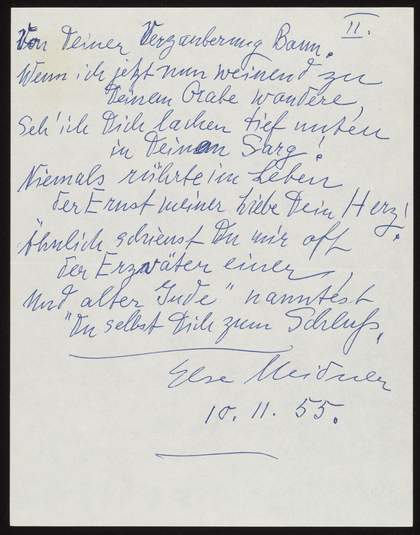 II.
Von Deiner Verzauberung Bann.
Wenn ich jetzt nun weinend zu
Deinem Grabe wandere,
Seh' ich Dich lachen tief unten
in Deinem Sarg!
Niemals rührte im Leben
der Ernst meiner Liebe Dein Herz!
Ähnlich schienst Du mir oft
der Erzväter einer,
Und "alter Jude" nanntest
Du selbst Dich zum Schluß.
Else Meidner
10. 11. 55.